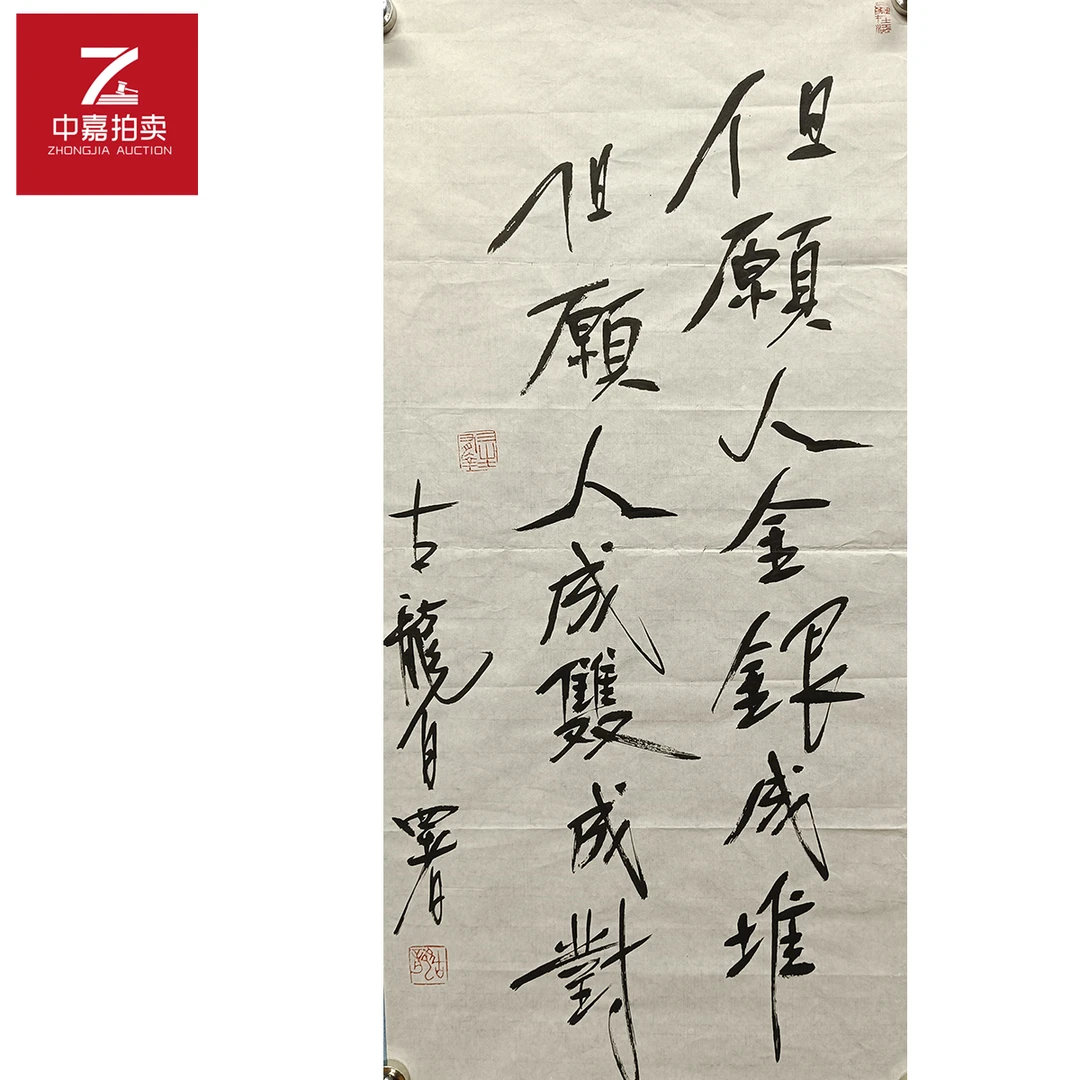 中嘉拍卖
ZHONGJIA AUCTION
但願人金銀成堆
但願人成雙成對
古龍自署